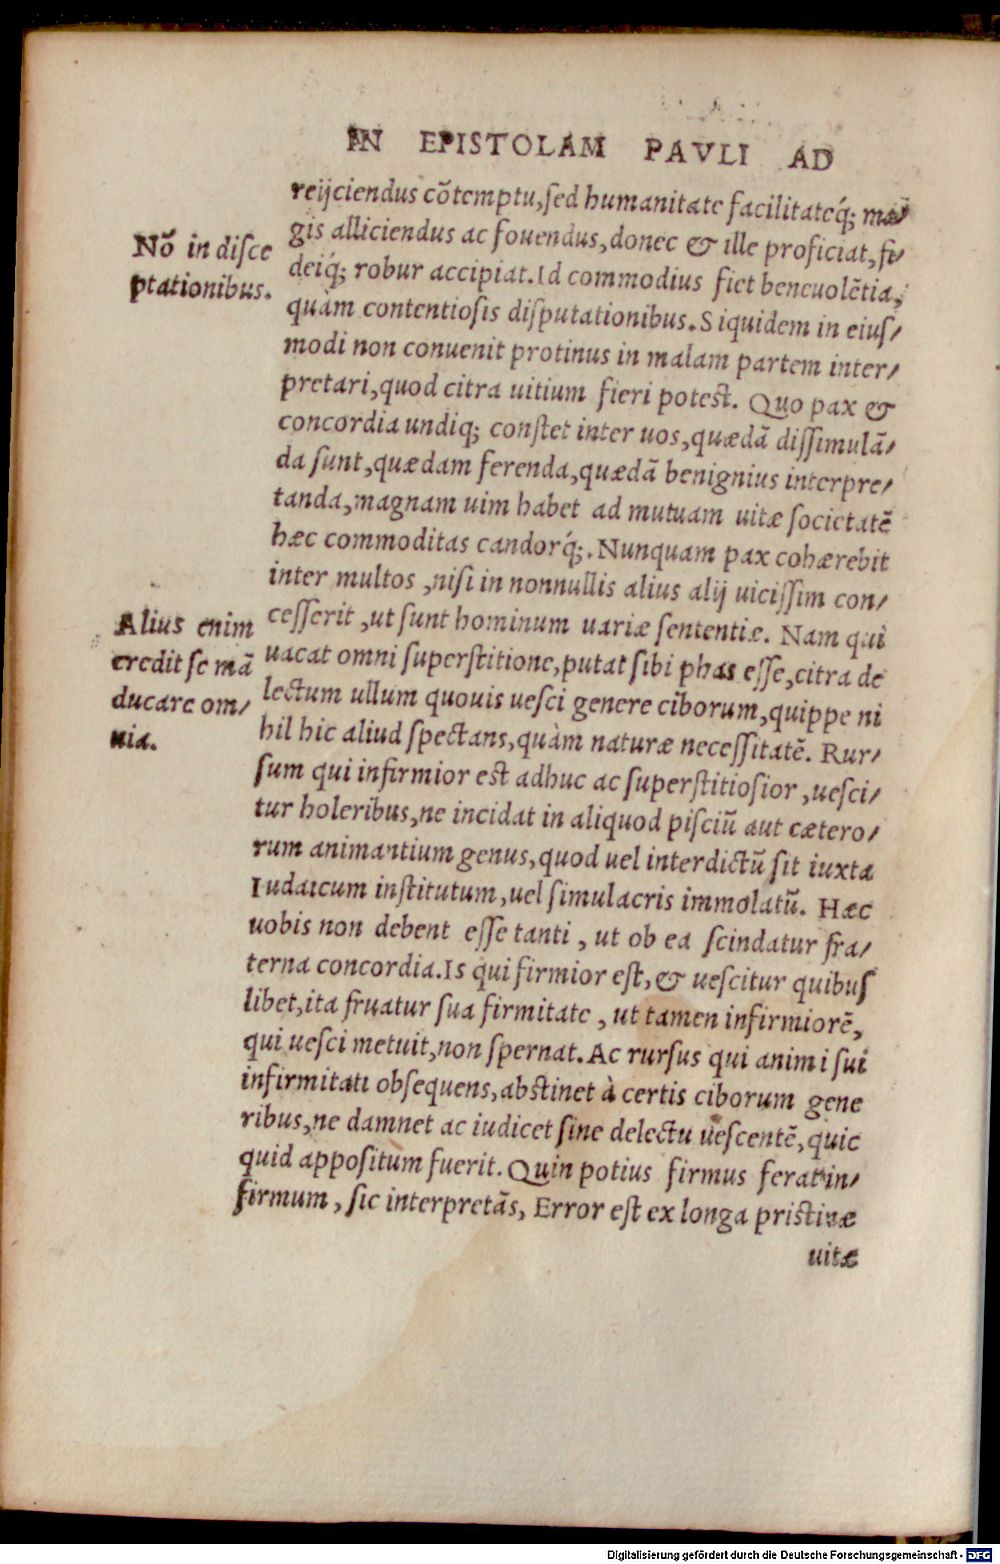 IN EPISTOLAM PAVLI AD
reijciendus cõtemptu, sed humanitate facilitateq́; ma/
gis alliciendus ac fouendus, donec & ille proficiat, fi/
deiq́; robur accipiat. Id commodius fiet beneuolẽtia,
quàm contentiosis disputationibus. Siquidem in eius/
modi non conuenit protinus in malam partem inter/
pretari, quod citra uitium fieri potest. Quo pax &
concordia undiq; constet inter uos, quædã dissimulã/
da sunt, quædam ferenda, quædã benignius interpre/
tanda, magnam uim habet ad mutuam uitæ societatẽ
hæc commoditas candorq́;. Nunquam pax cohærebit
inter multos, nisi in nonnullis alius alij uicissim con/
cesserit, ut sunt hominum uariæ sententiæ. Nam qui
uacat omni superstitione, putat sibi phas esse, citra de
lectum ullum quouis uesci genere ciborum, quippe ni
hil hic aliud spectans, quàm naturæ necessitatẽ. Rur/
sum qui infirmior est adhuc ac superstitiosior, uesci/
tur holeribus, ne incidat in aliquod pisciũ aut cætero/
rum animantium genus, quod uel interdictũ sit iuxta
Iudaicum institutum, uel simulacris immolatũ. Hæc
uobis non debent esse tanti, ut ob ea scindatur fra/
terna concordia. Is qui firmior est, & uescitur quibus
libet, ita fruatur sua firmitate, ut tamen infirmiorẽ,
qui uesci metuit, non spernat. Ac rursus qui animi sui
infirmitati obsequens, abstinet à certis ciborum gene
ribus, ne damnet ac iudicet sine delectu uescentẽ, quic
quid appositum fuerit. Quin potius firmus ferat in/
firmum, sic interpretãs, Error est ex longa pristinæ
uitæ
Nõ in disce
ptationibus.
Alius enim
credit se mã
ducare om/
nia.
Digitalisierung gefördert durch die Deutsche Forschungsgemeinschaft - DFG